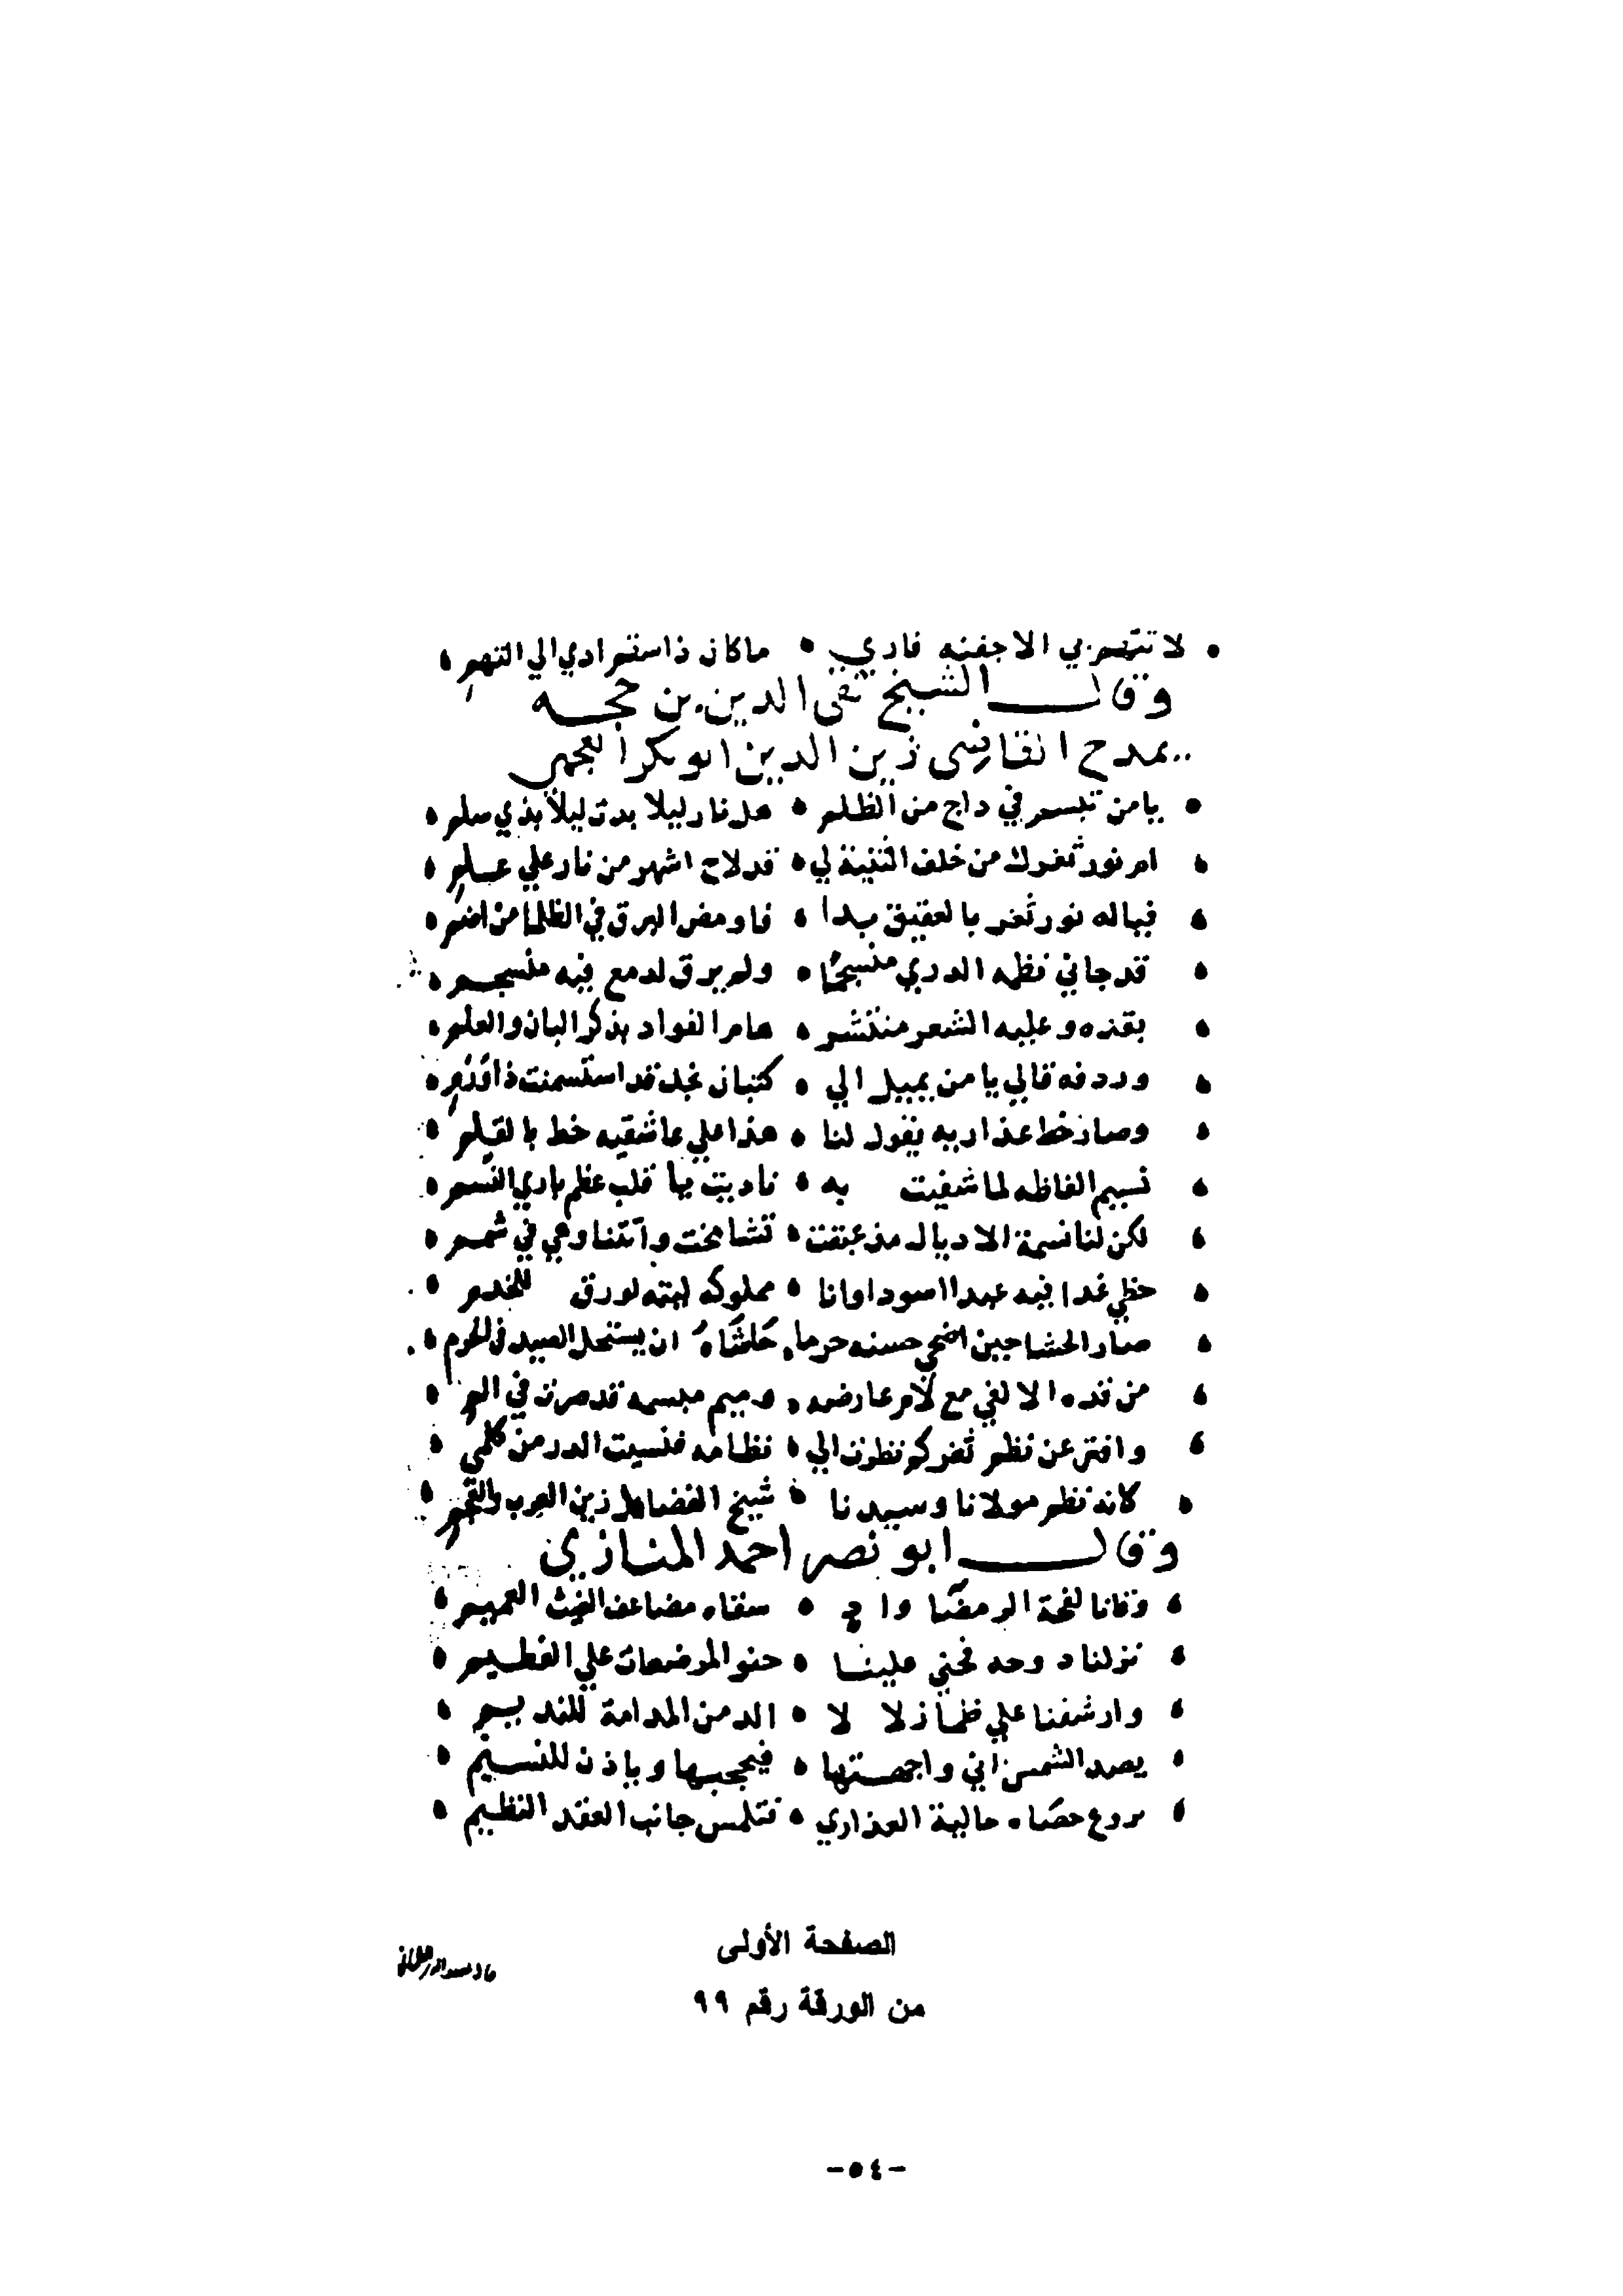 لا تتهم بي الا جفنه فاذي • ما كان ذا سقم ادي الي التهم
وقال الشيخ تقى الدين بن حجه
يمدح القاضى زين الدين ابو بكر العجمى
يا من تبسم في داج من الظلم • هل نار ليلا بدت ليلا بذي سلم
ام نور ثغرك من خلف الثنية لي • قد لاح اشهر من نار علي علم
فياله نور ثغر بالعقيق بدا • فاومض البرق في الظلما من اضم
قد جا في نظمه الدري منسجما • ولم يرق لدمع فيه منسجم
بقده وعليه الشعر منتشر • هام الفواد بذكر البان والعلم
وردفه قال لي يا من يميل الي • كثبان نجد قد استسمنت ذا ورم
وصار خط عذاريه يقول لنا • هذا علي عاشقيه خط بالقلم
نسيم الفاظه لما شفيت به • ناديت يا قلب عظم باري النسم
لكن لنا نسمة الاديال مذ عبقت • تشامخت واتتنا وهي في شمم
حظي غدا فيه عبدا اسودا وانا • مملوكه ليته لو رق للخدم
صاد الحشا حين اضحي حسنه حرما • حاشاه ان يستحل الصيد في الحرم
من قده الالفي مع لام عارضه • وميم مبسمه قد صرت في الم
وافتر عن نظم ثغر كم نظرت الي • نظامه فنسيت الدر من كلمي
كانه نظم مولانا وسيدنا • شيخ الفضايل زين العرب والعجم
وقال ابو نصر احمد المنازي
وقانا لفحة الرمضا واد • سقاه مضاعف الغيث العميم
نزلنا دوحه فحني علينا • حنو المرضعات علي الفطيم
وارشفنا علي ظما زلالا • الد من المدامة للنديم
يصد الشمس اني واجهتها • فيحجبها وياذن للنسيم
يروع حصاه حالية العذاري • فتلمس جانب العقد النظيم
الصفحة الأولى
من الورقة رقم ٩٩
-٥٤-